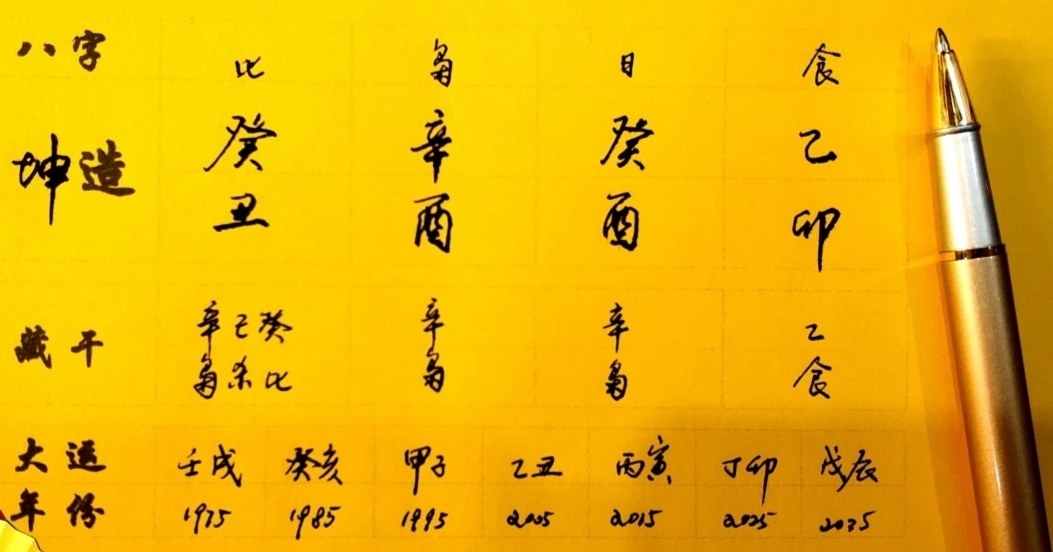 八字 比 枭 日 食
坤造 癸 辛 癸 乙
丑 酉 酉 卯
藏干 辛己癸 辛 辛 乙
枭杀比 枭 枭 食
大运 壬戌 癸亥 甲子 乙丑 丙寅 丁卯 戊辰
年份 1975 1985 1995 2005 2015 2025 2035